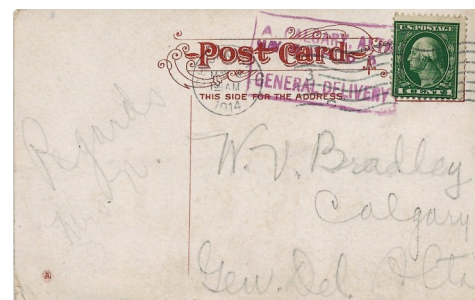 Post Card
THIS SIDE FOR THE ADDRESS.
AM
1914
CALGARY, ALTA
GENERAL DELIVERY
U.S. POSTAGE
1 CENT 1
Regards
W. V. Bradley
Calgary
Gen. Del. Alta